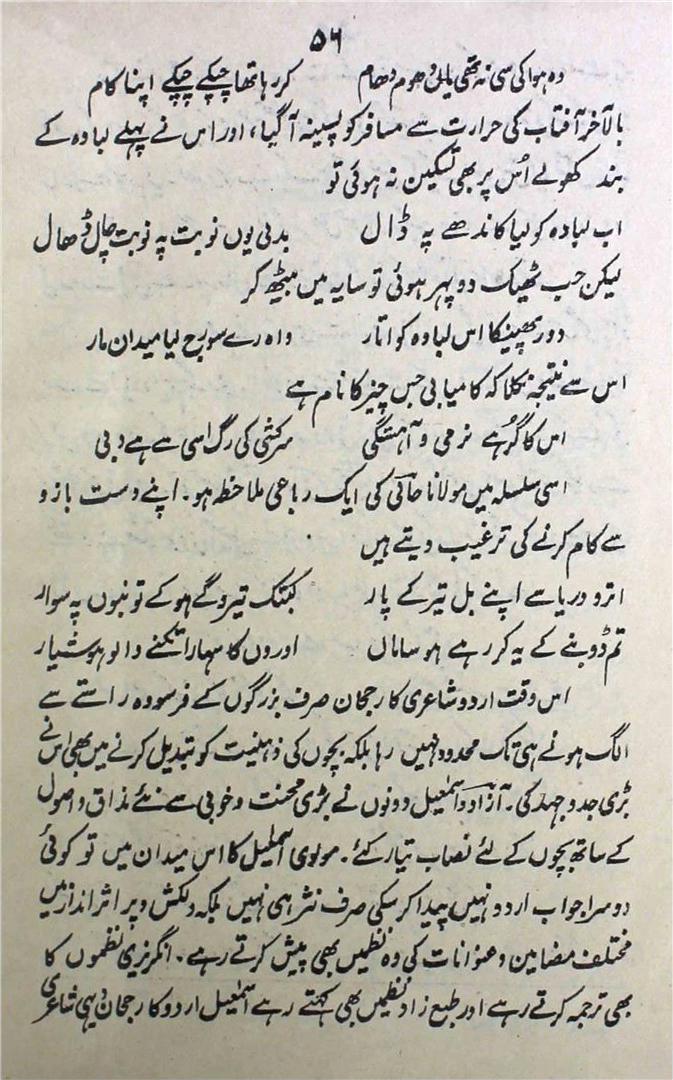 ۵۶
وہ ہوا کی سی نہ تھی یاں دھوم دھام کر رہا تھا چپکے چپکے اپنا کام
بالآخر آفتاب کی حرارت سے مسافر کو پسینہ آگیا، اور اس نے پہلے لبادہ کے
بند کھولے اُس پر بھی تسکین نہ ہوئی تو
اب لبادہ کو لیا کاندھے پہ ڈال بدلی یوں نوبت پہ نوبت چال ڈھال
لیکن جب ٹھیک دوپہر ہوئی تو سایہ میں بیٹھ کر
دور پھینکا اس لبادہ کو اتار واہ رے سورج لیا میدان مار
اس سے نتیجہ نکلا کہ کامیابی جس چیز کا نام ہے
اس کا گُر ہے نرمی و آہستگی سرکشی کی رگ اسی سے ہے دبی
اسی سلسلہ میں مولانا حالی کی ایک رباعی ملاحظہ ہو۔ اپنے دست بازو
سے کام کرنے کی ترغیب دیتے ہیں
اترو دریا سے اپنے بل تیر کے پار کبتک تیروگے ہو کے تونبوں پہ سوار
تم ڈوبنے کے یہ کر رہے ہو ساماں اوروں کا سہارا تکنے والو ہوشیار
اس وقت اردو شاعری کا رجحان صرف بزرگوں کے فرسودہ راستے سے
الگ ہونے ہی تک محدود نہیں رہا بلکہ بچوں کی ذہنیت کو تبدیل کرنے میں بھی اس نے
بڑی جدوجہد کی۔ آزاد و اسمٰعیل دونوں نے بڑی محنت و خوبی سے نئے مذاق و اصول
کے ساتھ بچوں کے لئے نصاب تیار کئے۔ مولوی اسمٰعیل کا اس میدان میں تو کوئی
دوسرا جواب اردو نہیں پیدا کر سکی صرف نثر ہی نہیں بلکہ دلکش و پر اثر انداز میں
مختلف مضامین و عنوانات کی وہ نظمیں بھی پیش کرتے رہے۔ انگریزی نظموں کا
بھی ترجمہ کرتے رہے اور طبع زاد نظمیں بھی کہتے رہے اسمٰعیل اردو کا رجحان دیہی شاعری